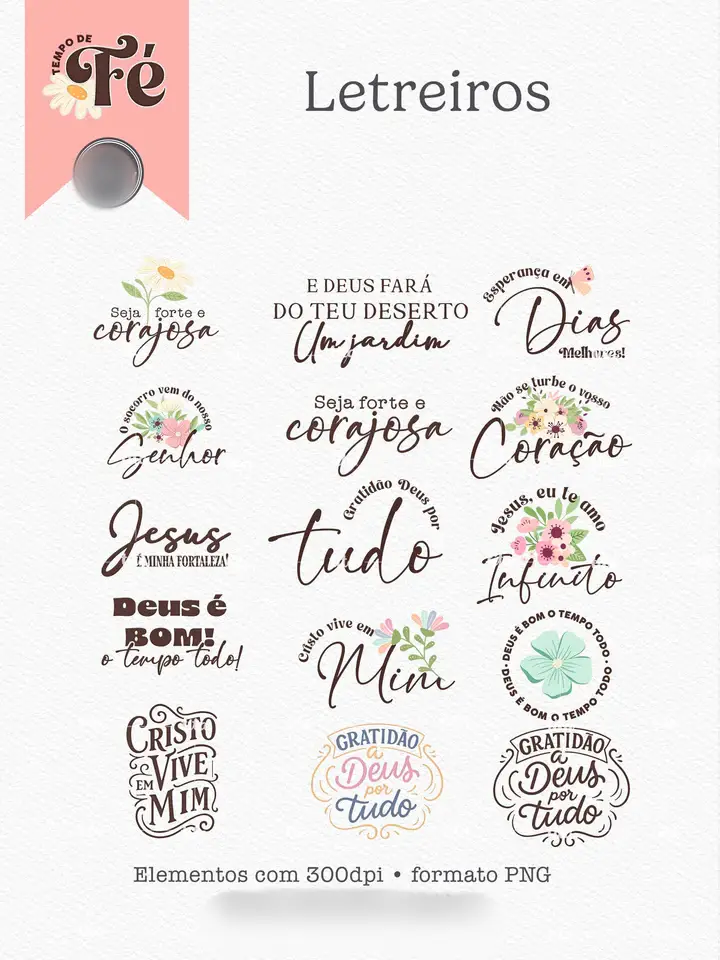 TEMPO DE
Fé
Letreiros
Seja forte e
corajosa
E DEUS FARÁ
DO TEU DESERTO
Um jardim
Esperança em
Dias
Melhores!
O socorro vem do nosso
Senhor
Seja forte e
corajosa
Não se turbe o vosso
Coração
Jesus
É MINHA FORTALEZA!
Gratidão Deus por
tudo
Jesus, eu te amo
Infinito
Deus é
BOM!
o tempo todo!
Cristo vive em
Mim
DEUS É BOM O TEMPO TODO •
DEUS É BOM O TEMPO TODO •
CRISTO
VIVE
EM
MIM
GRATIDÃO
a
Deus
por
tudo
GRATIDÃO
a
Deus
por
tudo
Elementos com 300dpi • formato PNG